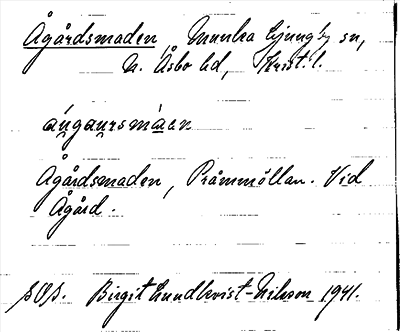 Ågårdsmaden, Munka Ljungby sn,
N. Åsbo hd, Krist. l.
Ågårdsmaden, Pråmmöllan. Vid
Ågård.
Birgit Lundkvist-Nilsson 1941.